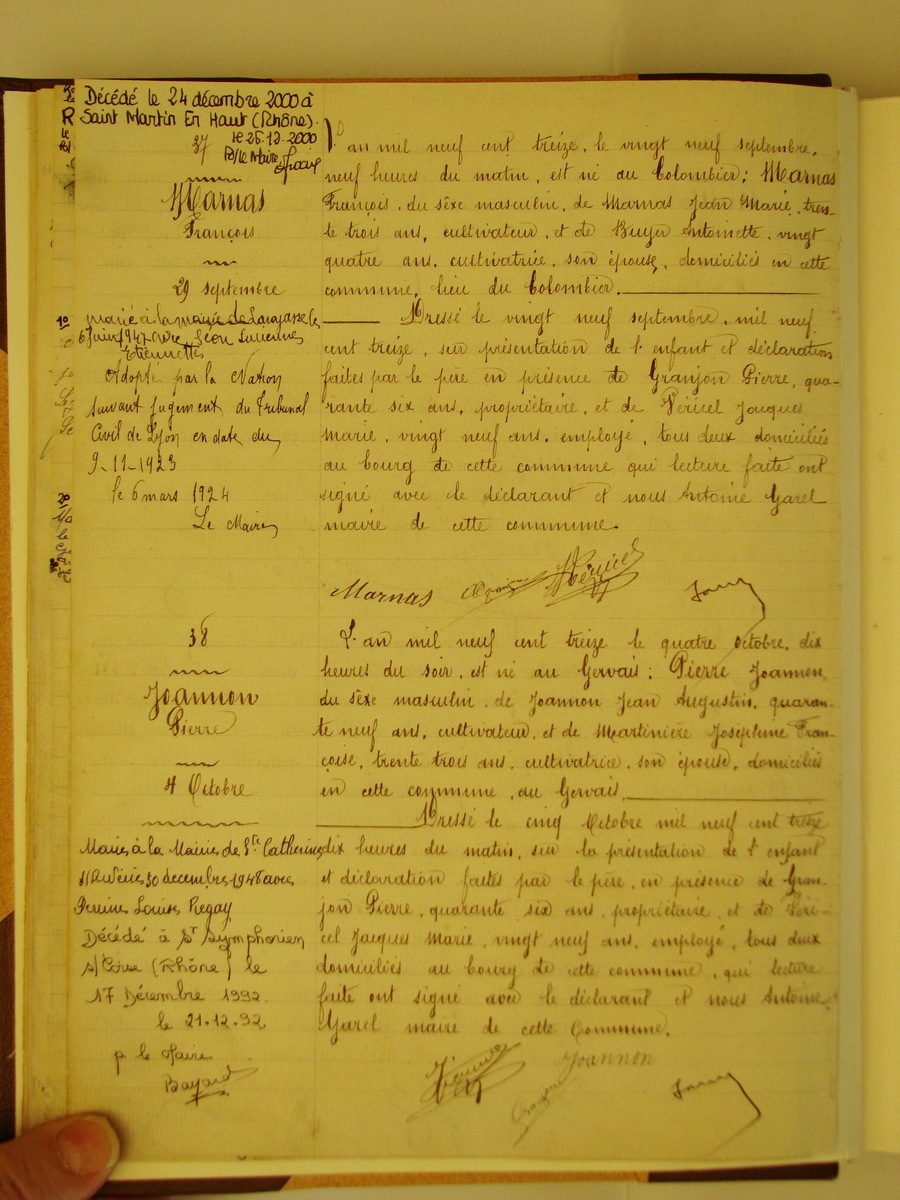 Décédé le 24 décembre 2000 à
Saint Martin En Haut (Rhône).
le 26.12.2000
P/le Maire
37
Marnas
François
29 septembre
marié à la mairie de Larajasse le
6 Juin 1947 avec
Etiennette
Adopté par la Nation
suivant jugement du Tribunal
Civil de Lyon en date du
9-11-1923
le 6 mars 1924
Le Maire
L'an mil neuf cent treize, le vingt neuf septembre,
neuf heures du matin, est né au Colombier; Marnas
François, du sêxe masculin, de Marnas Jean Marie, tren-
te trois ans, cultivateur, et de Buyer Antoinette, vingt
quatre ans, cultivatrice, son épouse, domiciliés en cette
commune, lieu du Colombier.
Dressé le vingt neuf septembre, mil neuf
cent treize, sur présentation de l'enfant et déclaration
faites par le père en présence de Granjon Pierre, qua-
rante six ans, propriétaire, et de Véricel Jacques
Marie, vingt neuf ans, employé, tous deux domiciliés
au bourg de cette commune qui lecture faite ont
signé avec le déclarant et nous Antoine Garel
maire de cette commune.
Marnas Granjon Véricel
38
Joannon
Pierre
4 Octobre
Marié à la Mairie de Ste Catherine
s/Riverie 30 décembre 1948 avec
Louise Regay
Décédé à St Symphorien
s/Coise (Rhône) le
17 Décembre 1992.
le 21.12.92
p le Maire
Bayard
L'an mil neuf cent treize le quatre octobre, dix
heures du soir, est né au Gervais; Pierre Joannon,
du sêxe masculin, de Joannon Jean Augustin, quaran-
te neuf ans, cultivateur, et de Martinière Joséphine Fran-
çoise, trente trois ans, cultivatrice, son épouse, domiciliés
en cette commune, au Gervais.
Dressé le cinq Octobre mil neuf cent treize
dix heures du matin, sur la présentation de l'enfant
et déclaration faites par le père, en présence de Gran-
jon Pierre, quarante six ans, propriétaire, et de Véri-
cel Jacques Marie, vingt neuf ans, employé, tous deux
domiciliés au bourg de cette commune, qui lecture
faite ont signé avec le déclarant et nous Antoine
Garel maire de cette Commune.
Joannon
Véricel
Granjon